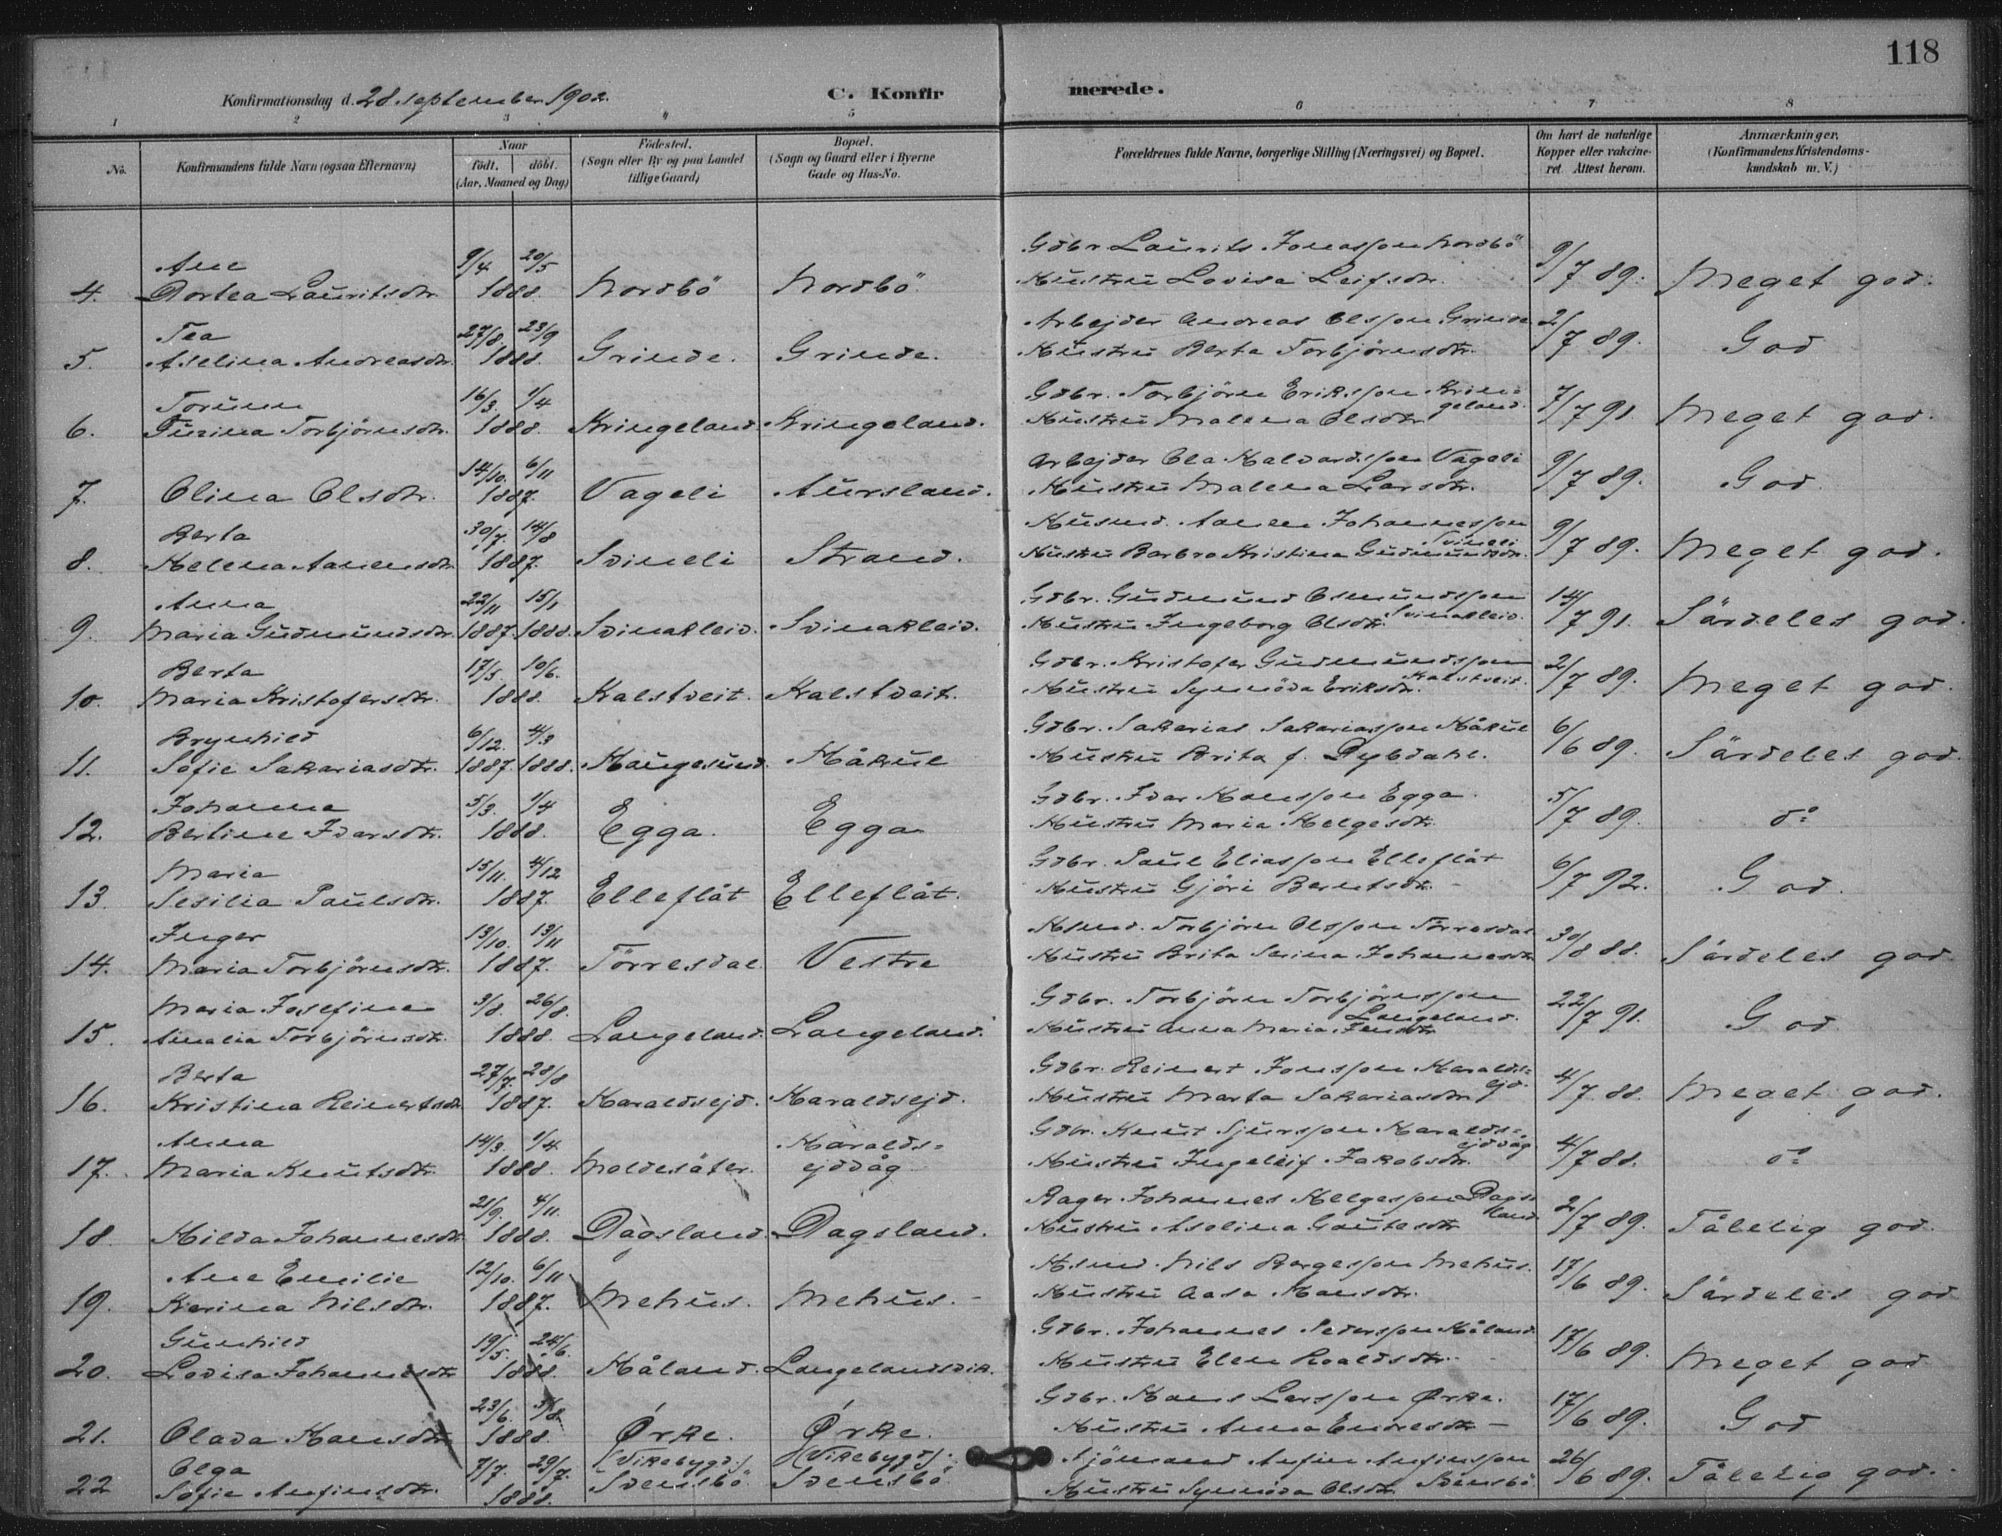 118
Konfirmationsdag d. 28. september 1902.
C. Konfirmerede.
1 2 3 4 5 6 7 8
No. Konfirmandens fulde Navn (ogsaa Efternavn) Naar født. døbt. (Aar, Maaned og Dag) Fødested. (Sogn eller By og paa Landet tillige Gaard) Bopæl. (Sogn og Gaard eller i Byerne Gade og Hus-No. Forældrenes fulde Navne, borgerlige Stilling (Næringsvei) og Bopæl. Om havt de naturlige Kopper eller vakcineret. Attest herom. Anmærkninger. (Konfirmandens Kristendomskundskab m. V.)
Ane 9/4 20/5 Gdbr Laurits Jonasson Nordbö
4. Dortea Lauritsdtr. 1888. Nordbö Nordbö. Hustru Lovisa Leifsdtr. 9/7 89. Meget god.
Tea 27/8. 23/9 Arbejder Andreas Olsson Grinde
5. Aselina Andreasdtr. 1888. Grinde. Grinde. Hustru Berta Torbjörnsdtr. 2/7 89. God
Torunn 16/3 1/4 Gdbr. Torbjörn Eriksson Kringeland.
6. Turina Torbjörnsdtr. 1888. Kringeland. Kringeland. Hustru Malena Olsdtr 7/7 91. Meget god.
14/10. 6/11 Arbejder Ola Halvardsson Vageli
7. Olina Olsdtr. 1887. Vageli Aursland. Hustru Malena Larsdtr. 9/7 89. God.
Berta 30/7. 14/8 Husmd. Aanen Johannesson Svineli
8. Helena Aanensdtr 1887. Svineli Strand. Hustru Barbro Kristina Gudmundsdtr. 9/7 89. Meget god.
Anna 22/11 15/1 Gdbr. Gudmund Osmundsson
9. Maria Gudmundsdtr. 1887. 1888. Svinakleiv. Svinakleiv. Hustru Ingeborg Olsdtr. Svinakleiv. 14/7 91. Särdeles god.
Berta 17/5 10/6. Gdbr. Kristofer Gudmundsson
10. Maria Kristofersdtr. 1888. Kalstveit. Kalstveit. Hustru Synnöva Eriksdtr. Kalstveit. 2/7 89. Meget god.
Brynhild 6/12. 4/3 Gdbr. Sakarias Sakariasson Håkul
11. Sofie Sakariasdtr. 1887. 1888. Haugesund. Håkul Hustru Brita f. Dybdahl. 6/6 89. Särdeles god.
Johanna 5/3. 1/4 Gdbr. Ivar Hansson Egga.
12. Berline Ivarsdtr. 1888. Egga. Egga Hustru Maria Helgesdtr. 5/7 89. do
Maria 15/11. 4/12 Gdbr. Paul Eliasson Elleflåt
13. Sesilia Paulsdtr. 1887. Elleflåt Elleflåt. Hustru Gjöri Berntsdtr. 6/7 92. God.
Inger 13/10. 13/11 Hsmd. Torbjörn Olsson Törresdal
14. Maria Torbjörnsdtr. 1887. Törresdal Vestre Hustru Brita Serina Johannesdtr 30/8 88. Särdeles god
Maria Josefine 3/8. 26/8. Gdbr. Torbjörn Torbjörnsson Langeland.
15. Amalia Torbjörnsdtr. 1888. Langeland. Langeland. Hustru Anna Maria Jensdtr 22/7 91. God
Berta 27/7. 28/8 Gdbr. Reinert Jonsson Haraldsejd.
16. Kristina Reinertsdtr 1887. Haraldsejd. Haraldsejd. Hustru Marta Sakariasdtr 4/7 88. Meget god.
Anna 14/3. 1/4 Haralds= Gdbr. Knut Sjursson Haraldsejdvåg
17. Maria Knutsdtr. 1888. Moldesäter. ejdvåg Hustru Ingeleif Jakobsdtr. 4/7 88. do
21/9. 4/11. Bager Johannes Helgesson Dagsland
18. Hilda Johannesdtr 1888. Dagsland. Dagsland. Hustru Aselina Gautesdtr 2/7 89. Tålelig god.
Ane Emilie 12/10. 6/11 Hsmd. Nils Börgesson Mehus.
19. Karina Nilsdtr. 1887. Mehus. Mehus. Hustru Aasa Hansdtr. 17/6 89. Särdeles god
Gunhild 19/5. 24/6. Gdbr. Johannes Pedersson Håland.
20. Lovisa Johannesdtr 1888. Håland. Langelandsvik. Hustru Elen Roaldsdtr. 17/6 89. Meget god
23/6. 3/8. Gdbr. Hans Larsson Ørke.
21. Olava Hansdtr 1888. Ørke. Ørke. Hustru Anna Endresdtr 17/6 89. God
Olga 7/7. 29/7. (Vikebygd) (Vikebygd) Sjömand Anfin Anfinsson
22 Sofie Anfinsdtr. 1888. Svensbö Svensbö Hustru Synnöva Olsdtr. Svensbö 26/6 89. Tålelig god.